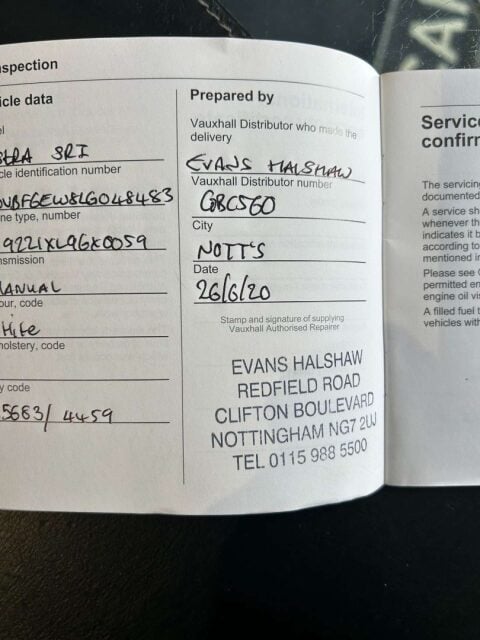 spection
icle data
el
STRA SRI
cle identification number
0VBFGEW8LG048483
ne type, number
9221XL9GX0059
nsmission
MANUAL
our, code
White
holstery, code
y code
5683/4459
Prepared by
Vauxhall Distributor who made the
delivery
EVANS HALSHAW
Vauxhall Distributor number
GBC560
City
NOTT'S
Date
26/6/20
Stamp and signature of supplying
Vauxhall Authorised Repairer
EVANS HALSHAW
REDFIELD ROAD
CLIFTON BOULEVARD
NOTTINGHAM NG7 2UJ
TEL 0115 988 5500
Service
confirm
The servicing
documented
A service sh
whenever th
indicates it b
according to
mentioned in
Please see
permitted en
engine oil vis
A filled fuel t
vehicles with